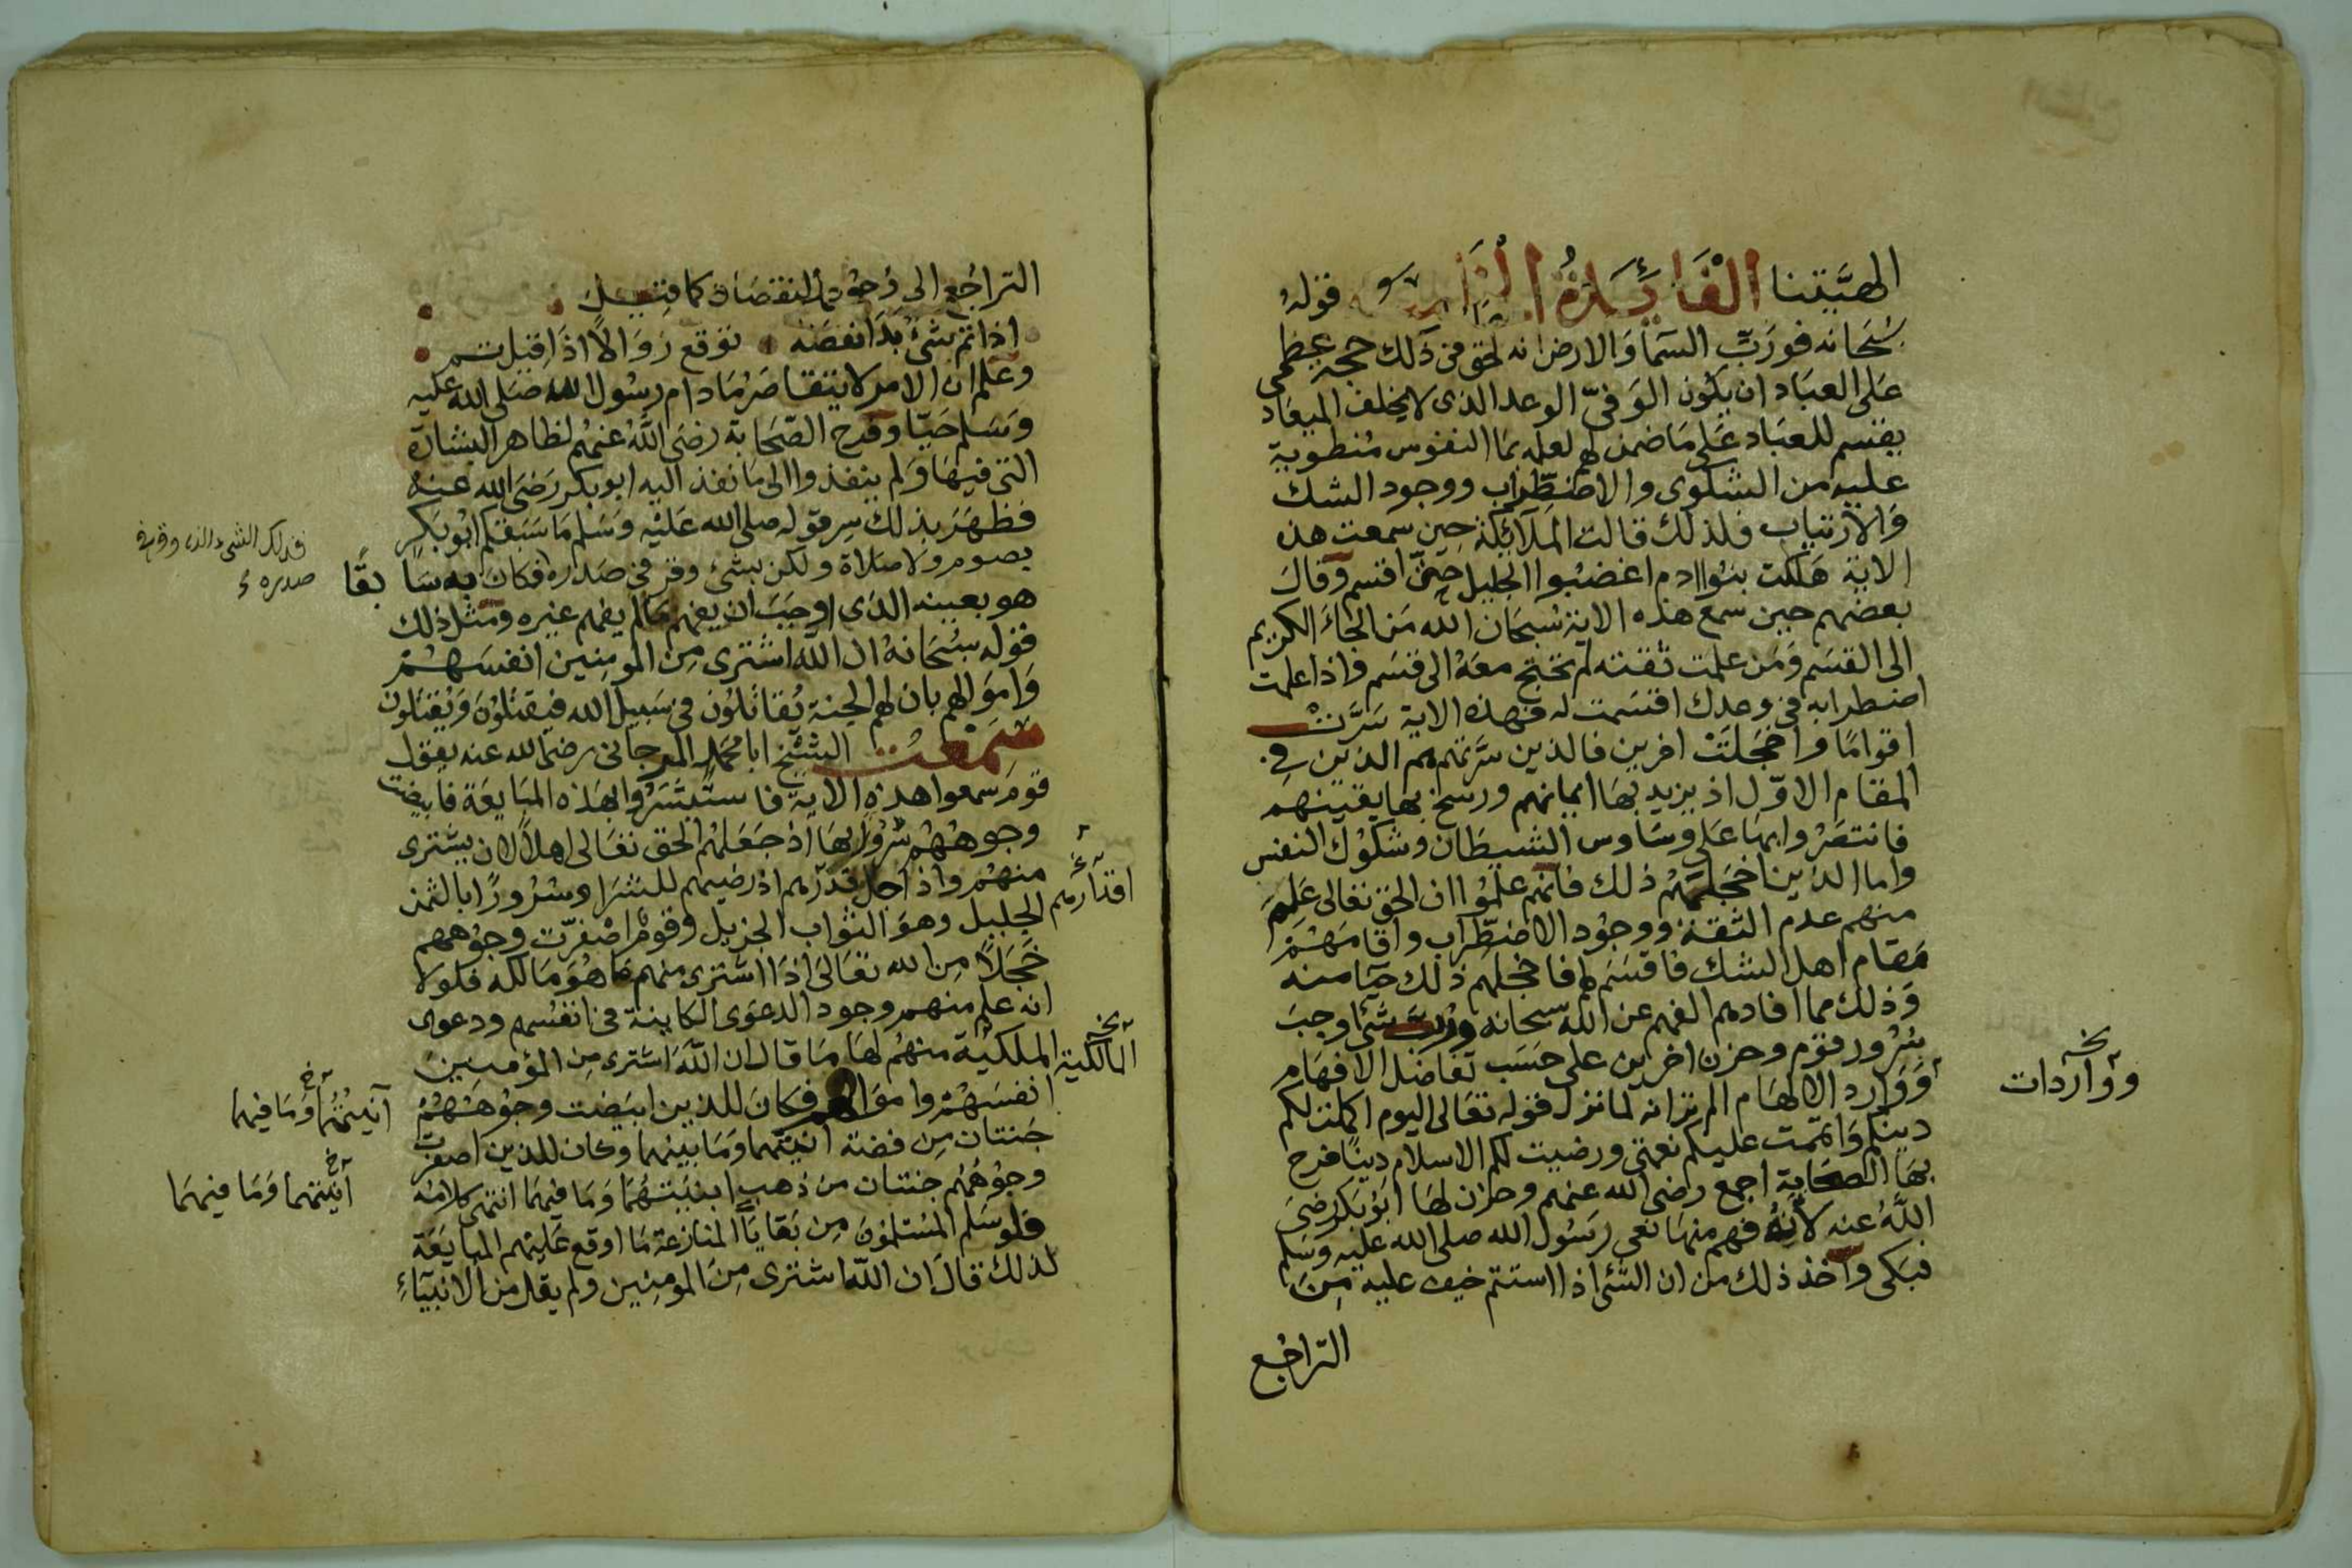 الهيتنا الْفَائِدَةُ الثَّا قوله
سُبْحَانه فورَبِّ السَّمَاوَالارض انه لحق فى ذلك حجة عظمى
عَلى العبَاد ان يكون الوَفىّ الوعد الذى لا يخلف الميعَاد
يقسم للعبَاد عَلى مَا ضمن لهم لعلمه بمَا النفوس منطوية
عليه من الشكوى والاضطراب ووجود الشك
وَالارتياب فلذلك قالت الملآئكة حين سمعت هذه
الاية هَلكت بنوا ادم اغضبُوا الجليل حتىّ اقسم وَقالَ
بعضهم حين سمع هذه الاية سُبحَان الله مَن الجاءَ الكريم
الى القسَم وَمَن علمت ثقته لم تحتج معَهُ الى قسَم فاذا علمت
اضطرابه فى وعدك اقسَمت له فهذه الاية سَرَّتْ
اقوامًا واخجَلَتْ اخرين فالذين سَرَّتهم هم الذين فى
المقام الاوّل اذ يزيد بهَا ايمانهم ورسخ بها يقينهم
فانتصَرُوا بهَا عَلى وسَاوس الشيطَان وشكوك النفس
واما الذين اخجلتهُم ذلك فانهم علمُوا ان الحق تعَالى عَلِمَ
منهم عدم الثقة ووجود الاضطراب واقامَهُمْ
مَقام اهل الشك فاقسَم لهم فاخجلهم ذلك حيآ منه
وَذلك مما افادهم الفهم عن الله سبحانه وَربّ شئ اوجبَ
سُرُور قوم وحزن اخرين على حَسَب تفاضل الافهَام
وَوَارد الالهَام الم تر انه لما نزل قوله تعَالى اليوم اكملت لكم
دينكم وَاتممت عليكم نعمتى ورضيت لكم الاسلام دينًا فرح
بهَا الصحَابة اجمع رضى الله عنهم وحزن لهَا ابُوبَكر رضىَ
اللَّهُ عنه لأنّهُ فهم منهَا نعى رَسُول الله صلى الله عليه وسَلم
فبَكى واخذ ذلك من ان الشئ اذا استتم خيف عليه مِنَ
التراجُع
نخ
ووَاردات
التراجُع الى وُجُود النقصَان كما قيل
اذا تم شئ بدَا نقصَه توقع زوَالاً اذا قيل تم
وعَلم ان الامر لا يتقاصَر مَا دام رسُول الله صَلى الله عليه
وَسَلم حَيّا وفرح الصّحَابة رضىَ اللَّهُ عنهُم لظاهر البشارة
التى فيهَا وَلم ينفذوا الى مَا نفذ اليه ابو بكر رَضى الله عنهُ
فظهَرَ بذلك سر قوله صلى الله عَليْه وَسَلم مَا سَبَقكم ابُو بَكر
بصوم وَلا صَلاة ولكن بشئ وقر فى صَدره فكانَ به سَا بقًا
هو بعينه الذى اوجبَ ان يفهم مَالم يفهم غيره ومثل ذلك
قوله سُبحَانهُ ان اللَّه اشترى من المومنين انفسَهُمْ
وَاموَالهم بان لهم الجنة يُقاتلُون فى سَبيل الله فيَقتلُونَ وَيُقتَلون
سَمِعْتُ الشيْخ ابا محمَّد المرجانى رضى الله عنه يقول
قومٌ سمعوا هذه الاية فاستبشرُوا بهَذه المبَايعَة فابيضت
وجوهُهُم سُرُورًا بهَا اذ جَعَلهُم الحق تعَالى اهلاً لان يشترى
منهُم واذ اجل قدرهم اذ رضيهم للشرَا وسُرُورًا بالثمن
الجليل وهوَ الثواب الجزيل وقومٌ اصْفرّت وجُوههم
خَجَلاً منَ الله تعَالىَ اذا اشترى منهم مَا هُوَ مَالكه فلولا
انه علم منهم وجود الدعوَى الكاينة فى انفسُهم ودعوى
الملكيَّة منهُم لهَا مَا قال ان اللَّهَ اشترى مِن المؤمنينَ
انفسَهُمْ واموَالهم فكانَ للذين ابيَضت وجُوهُهُمْ
جَنتان مِن فضة انيتهما وَمَا بينهما وكان للذين اصفرت
وجُوهُهُم جنتان من ذهب ابنيَتهُمَا وَمَا فيهمَا انتهى كلامه
فلو سَلم المُسْلمُونَ مِن بَقايَا المنازعة مَا اوقع عَليهُم المبايَعَة
لذلك قالَ ان اللّه اشترى مِنَ المومِنين ولم يقل من الانبيَآءِ
فذلك الشىء الذى وقر فى
صدره
اقدارهم
نخ
المالكية
آنيتُهُمَا وَمَا فيهما
آنيتهما وَمَا فيهمَا